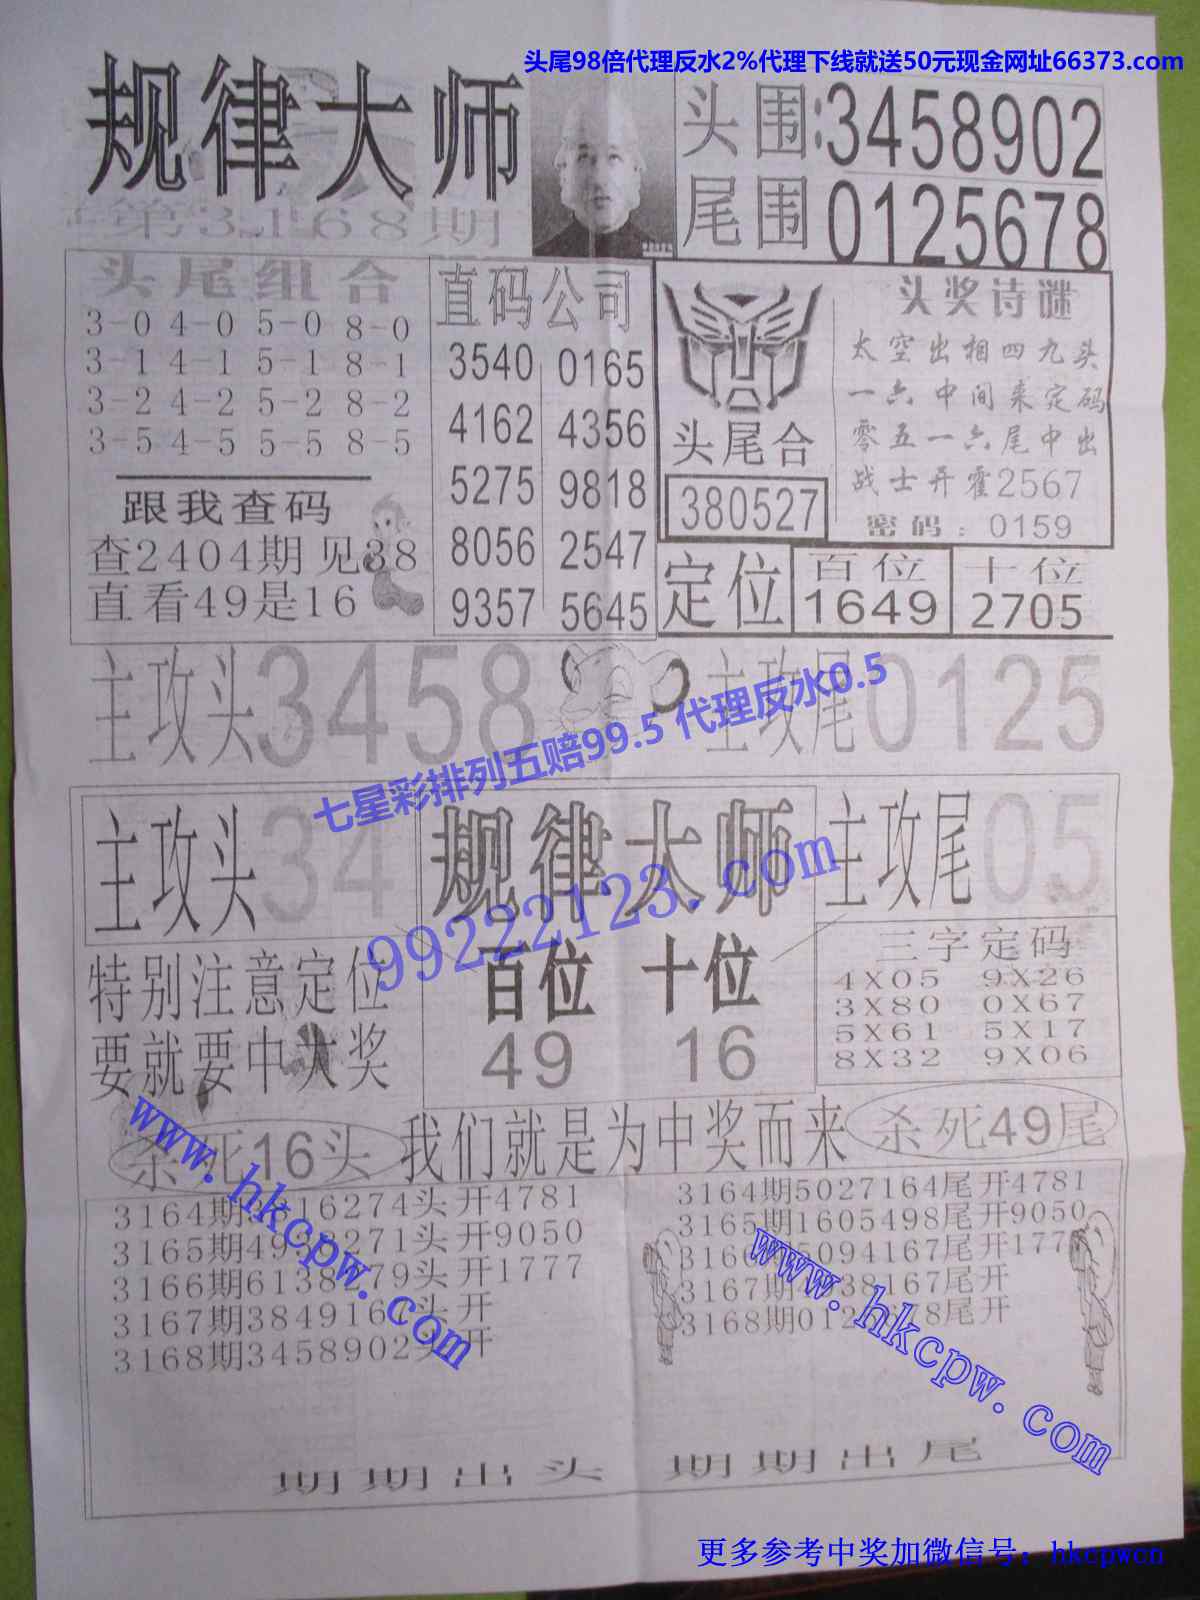 头尾98倍代理反水2%代理下线就送50元现金网址66373.com
规律大师
第3168期
头围:3458902
尾围0125678
头尾组合
3-0 4-0 5-0 8-0
3-1 4-1 5-1 8-1
3-2 4-2 5-2 8-2
3-5 4-5 5-5 8-5
跟我查码
查2404期见38
直看49是16
直码公司
3540 0165
4162 4356
5275 9818
8056 2547
9357 5645
头尾合
380527
头奖诗谜
太空出相四九头
一六中间来定码
零五一六尾中出
战士开霍2567
密码:0159
定位
百位
1649
十位
2705
主攻头3458
主攻尾0125
七星彩排列五赔99.5 代理反水0.5
主攻头34
规律大师
主攻尾05
99222123.com
特别注意定位
要就要中大奖
百位 十位
49 16
三字定码
4X05 9X26
3X80 0X67
5X61 5X17
8X32 9X06
杀死16头
我们就是为中奖而来
杀死49尾
www.hkcpw.com
3164期 616274头开4781
3165期49 271头开9050
3166期6138279头开1777
3167期384916 头开
3168期3458902头开
3164期5027164尾开4781
3165期1605498尾开9050
316 5094167尾开177
3167期 38167尾开
3168期012 78尾开
www.hkcpw.com
期期出头 期期出尾
更多参考中奖加微信号：hkcpwcn